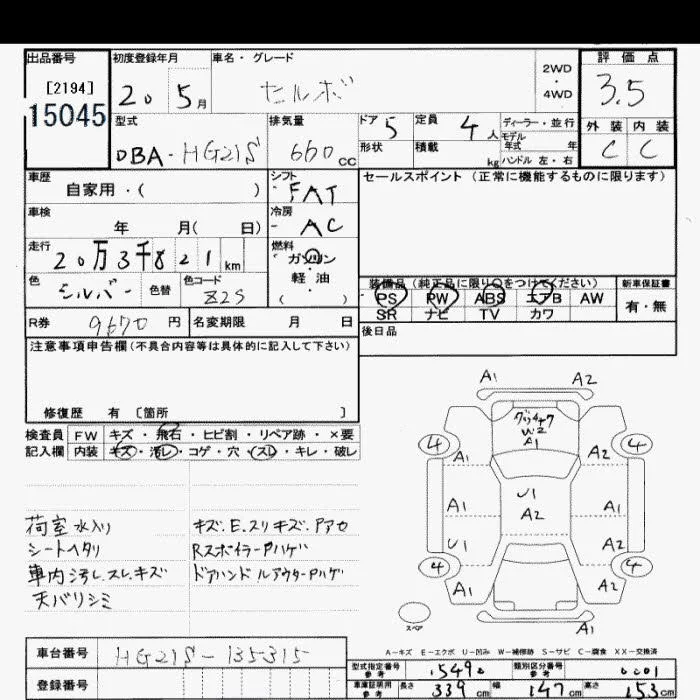 出品番号
[2194]
15045
初度登録年月
20 5月
車名・グレード
セルボ
2WD
4WD
評価点
3.5
外装 内装
C C
型式
DBA-HG21S
排気量
660 CC
ドア 5
形状
定員 4人
積載 kg
ディーラー・並行
モデル
年式 年
ハンドル 左・右
車歴
自家用・( )
シフト
FAT
車検
年 月( 日)
冷房
AC
走行
20万3千821km
燃料
ガソリン
軽・油
( )
色
シルバー
色替
色コード
Z2S
R券 9670円
名変期限 月 日
セールスポイント(正常に機能するものに限ります)
装備品(純正品に限り○をつけてください)
PS PW ABS エアB AW
SR ナビ TV カワ
新車保証書
有・無
後日品
注意事項申告欄(不具合内容等は具体的に記入して下さい)
修復歴 有 [箇所 ]
検査員
記入欄
FW キズ・飛石・ヒビ割・リペア跡・×要
内装 キズ・汚レ・コゲ・穴・スレ・キレ・破レ
荷室水入り
シートヘタリ
車内汚レ.スレ.キズ
天バリシミ
キズ.E.スリキズ.Pアセ
RスポイラーPハゲ
ドアハンドルアウターPハゲ
A1 A2
W2
A1
4 4
A1 A2
U1
A2
A1 A1
U1 A2
4 4
A1 A2
A1
スペア
A-キズ E-エクボ U-凹み W-補修跡 S-サビ C-腐食 XX-交換済
車台番号
HG21S-135315
登録番号
型式指定番号
参考
類別区分番号
参考
0001
車庫証明用
参考
長さ 339cm 幅 147cm 高さ 153cm